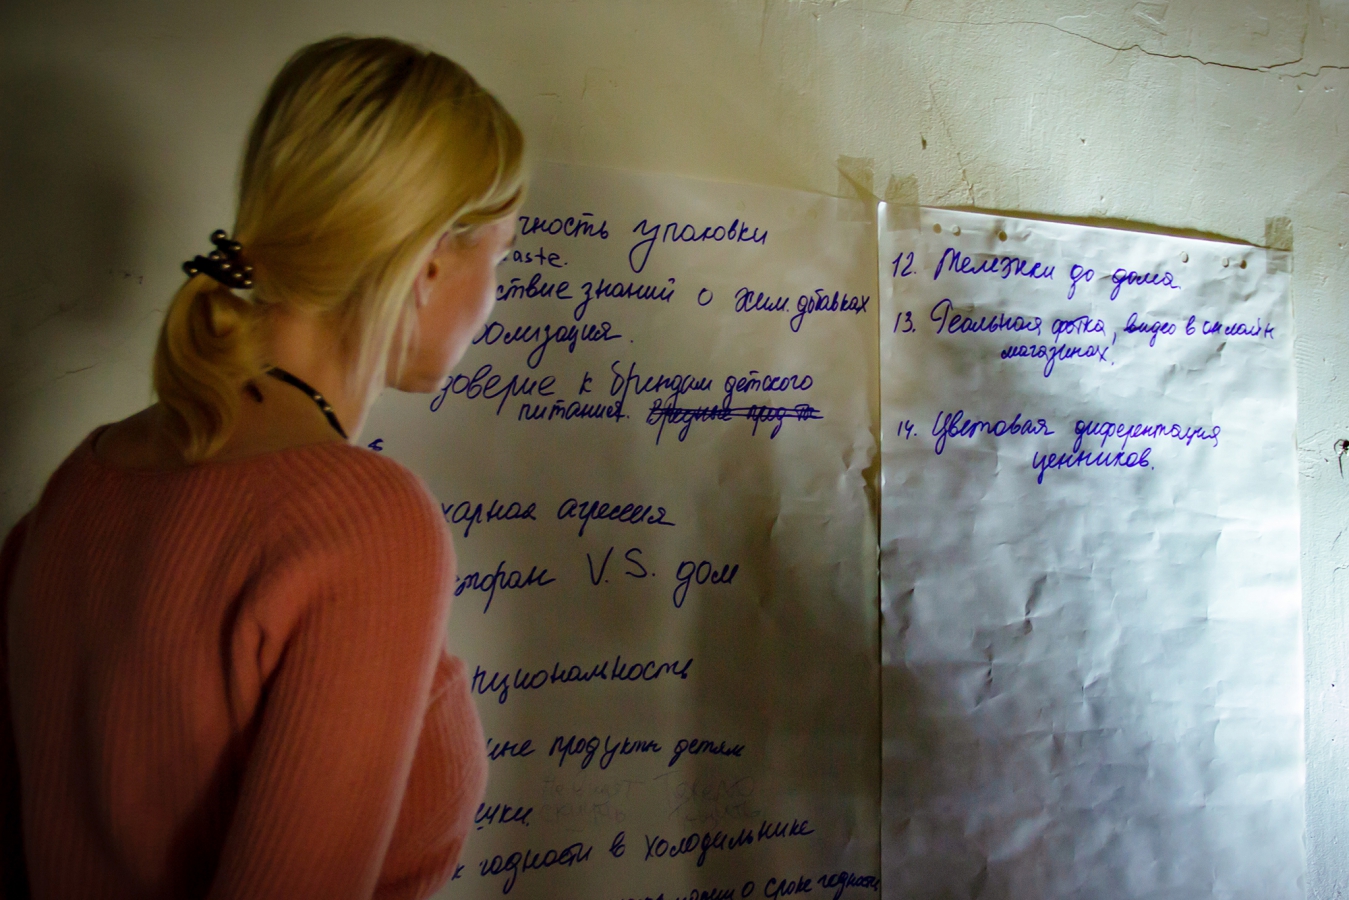 чность упаковки
aste.
ствие знаний о хим. добавках
омизация.
доверие к брендам детского
питания.
харная агрессия
стфан V.S. дом
циональность
продукты детям
чки.
к годности в холодильнике
о сроке годности
12. Тележки до дома.
13. Реальная фотка, видео в онлайн
магазинах.
14. Цветовая диферентация
ценников.